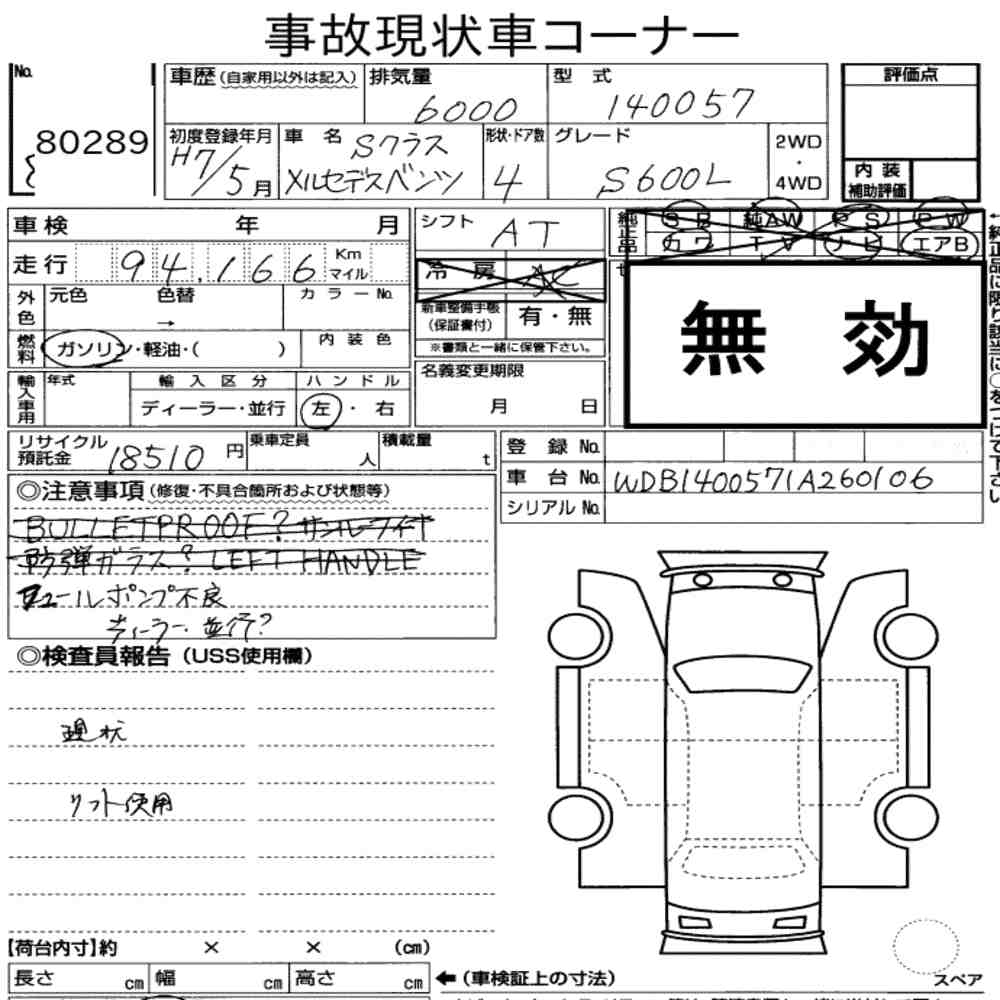 事故現状車コーナー
No. 80289
車歴(自家用以外は記入)
排気量 6000
型式 140057
評価点
初度登録年月 H7/5月
車名 Sクラス メルセデスベンツ
形状・ドア数 4
グレード S600L
2WD・4WD
内装補助評価
車検 年 月
シフト AT
純正品 SB 純AW PS PW
カワ TV ナビ エアB
走行 94,166 Km マイル
冷房 AC
外色 元色 色替 → カラーNo.
新車整備手帳(保証書付) 有・無
※書類と一緒に保管下さい。
無効
燃料 ガソリン・軽油・( )
内装色
輸入車用 年式
輸入区分 ディーラー・並行
ハンドル 左・右
名義変更期限 月 日
リサイクル預託金 18510円
乗車定員 人
積載量 t
登録No.
車台No. WDB1400571A260106
シリアルNo.
◎注意事項(修復・不具合箇所および状態等)
BULLETPROOF?
防弾ガラス? LEFT HANDLE
ポンプ不良
ディーラー・並行?
◎検査員報告(USS使用欄)
現状
リフト使用
【荷台内寸】約 × × (cm)
長さ cm 幅 cm 高さ cm
←(車検証上の寸法)
スペア